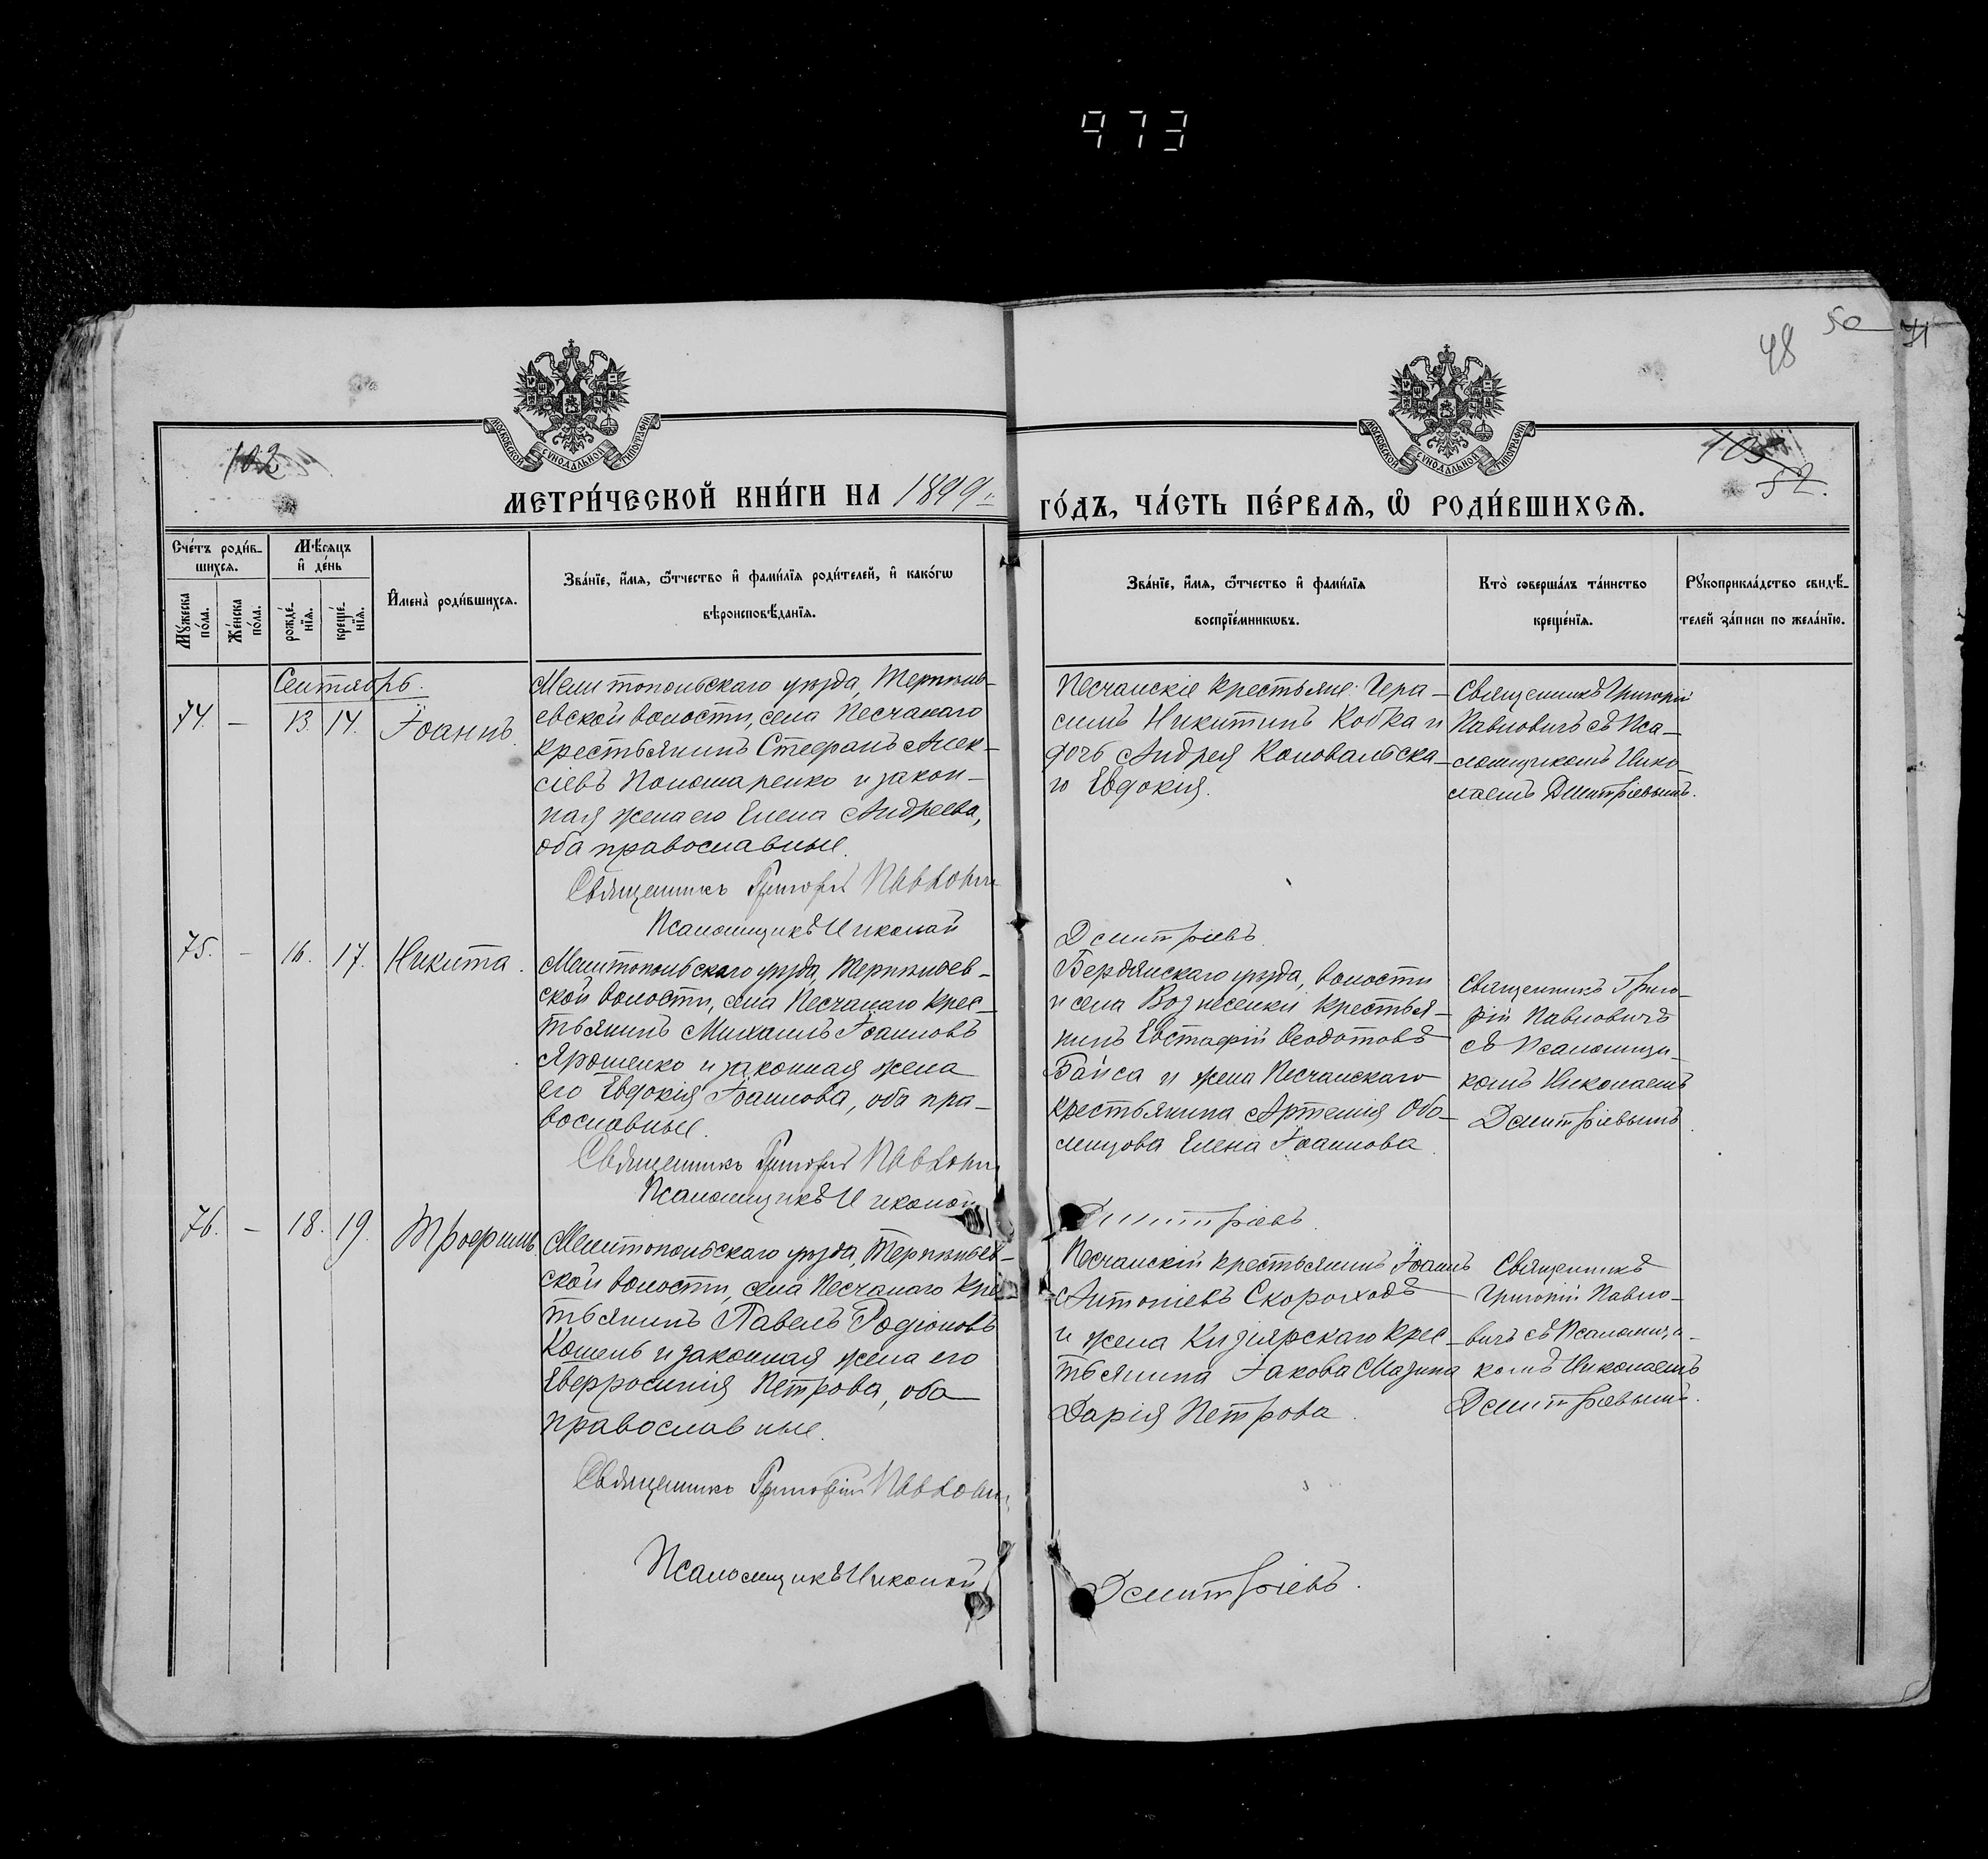 973
48
50
71
102
52.
МОСКОВСКОЙ СѴНОДАЛЬНОЙ ТИПОГРАФІИ
МОСКОВСКОЙ СѴНОДАЛЬНОЙ ТИПОГРАФІИ
МЕТРИ́ЧЕСКОЙ КНИ́ГИ НА 1899
ГО́ДЪ, ЧА́СТЬ ПЕ́РВАЯ, Ѡ҆ РОДИ́ВШИХСѦ.
Сче́тъ роди́в-
шихсѧ.
Мѣ́сѧцъ
и҆ де́нь
Мꙋ́жеска
по́ла.
Же́нска
по́ла.
рожде́-
нїѧ.
креще́-
нїѧ.
И҆мена̀ роди́вшихсѧ.
Зва́нїе, и҆́мѧ, ѻ҆́тчество и҆ фами́лїѧ роди́телей, и҆ како́гѡ
вѣроисповѣ́данїѧ.
Зва́нїе, и҆́мѧ, ѻ҆́тчество и҆ фами́лїѧ
воспрїе́мникѡвъ.
Кто̀ соверша́лъ та́инство
креще́нїѧ.
Рꙋкоприкла́дство свидѣ́-
телей за́писи по жела́нїю.
Сентябрь.
74. — 13. 14. Іоаннъ.
Мелитопольскаго уѣзда, Терпѣнь-
евской волости, села Песчанаго
крестьянинъ Стефанъ Алек-
сіевъ Пономаренко и закон-
ная жена его Елена Андреева,
оба православные.
Священникъ Григорій Павловичъ
Псаломщикъ Николай
Дмитріевъ.
Песчанскіе крестьяне: Гера-
симъ Никитинъ Кобка и
дочь Андрея Коновальска-
го Евдокія.
Священникъ Григорій
Павловичъ съ Пса-
ломщикомъ Нико-
лаемъ Дмитріевымъ.
75. — 16. 17. Никита.
Мелитопольскаго уѣзда, Терпѣньев-
ской волости, села Песчанаго крес-
тьянинъ Михаилъ Іоанновъ
Ярошенко и законная жена
его Евдокія Іоаннова, оба пра-
вославные.
Священникъ Григорій Павловичъ
Псаломщикъ Николай
Дмитріевъ.
Бердянскаго уѣзда, волости
и села Вознесенки крестья-
нинъ Евстафій Ѳеодотовъ
Байса и жена Песчанскаго
крестьянина Артемія Обо-
ленцова Елена Іоаннова.
Священникъ Григо-
рій Павловичъ
съ Псаломщи-
комъ Николаемъ
Дмитріевымъ.
76. — 18. 19. Трофимъ.
Мелитопольскаго уѣзда, Терпѣньев-
ской волости, села Песчанаго крес-
тьянинъ Павелъ Родіоновъ
Кошель и законная жена его
Евфросинія Петрова, оба
православные.
Священникъ Григорій Павловичъ
Псаломщикъ Николай
Дмитріевъ.
Песчанскій крестьянинъ Іоаннъ
Антоніевъ Скороходъ
и жена Кизіярскаго крес-
тьянина Іакова Мазина
Дарія Петрова.
Священникъ
Григорій Павло-
вичъ съ Псаломщи-
комъ Николаемъ
Дмитріевымъ.